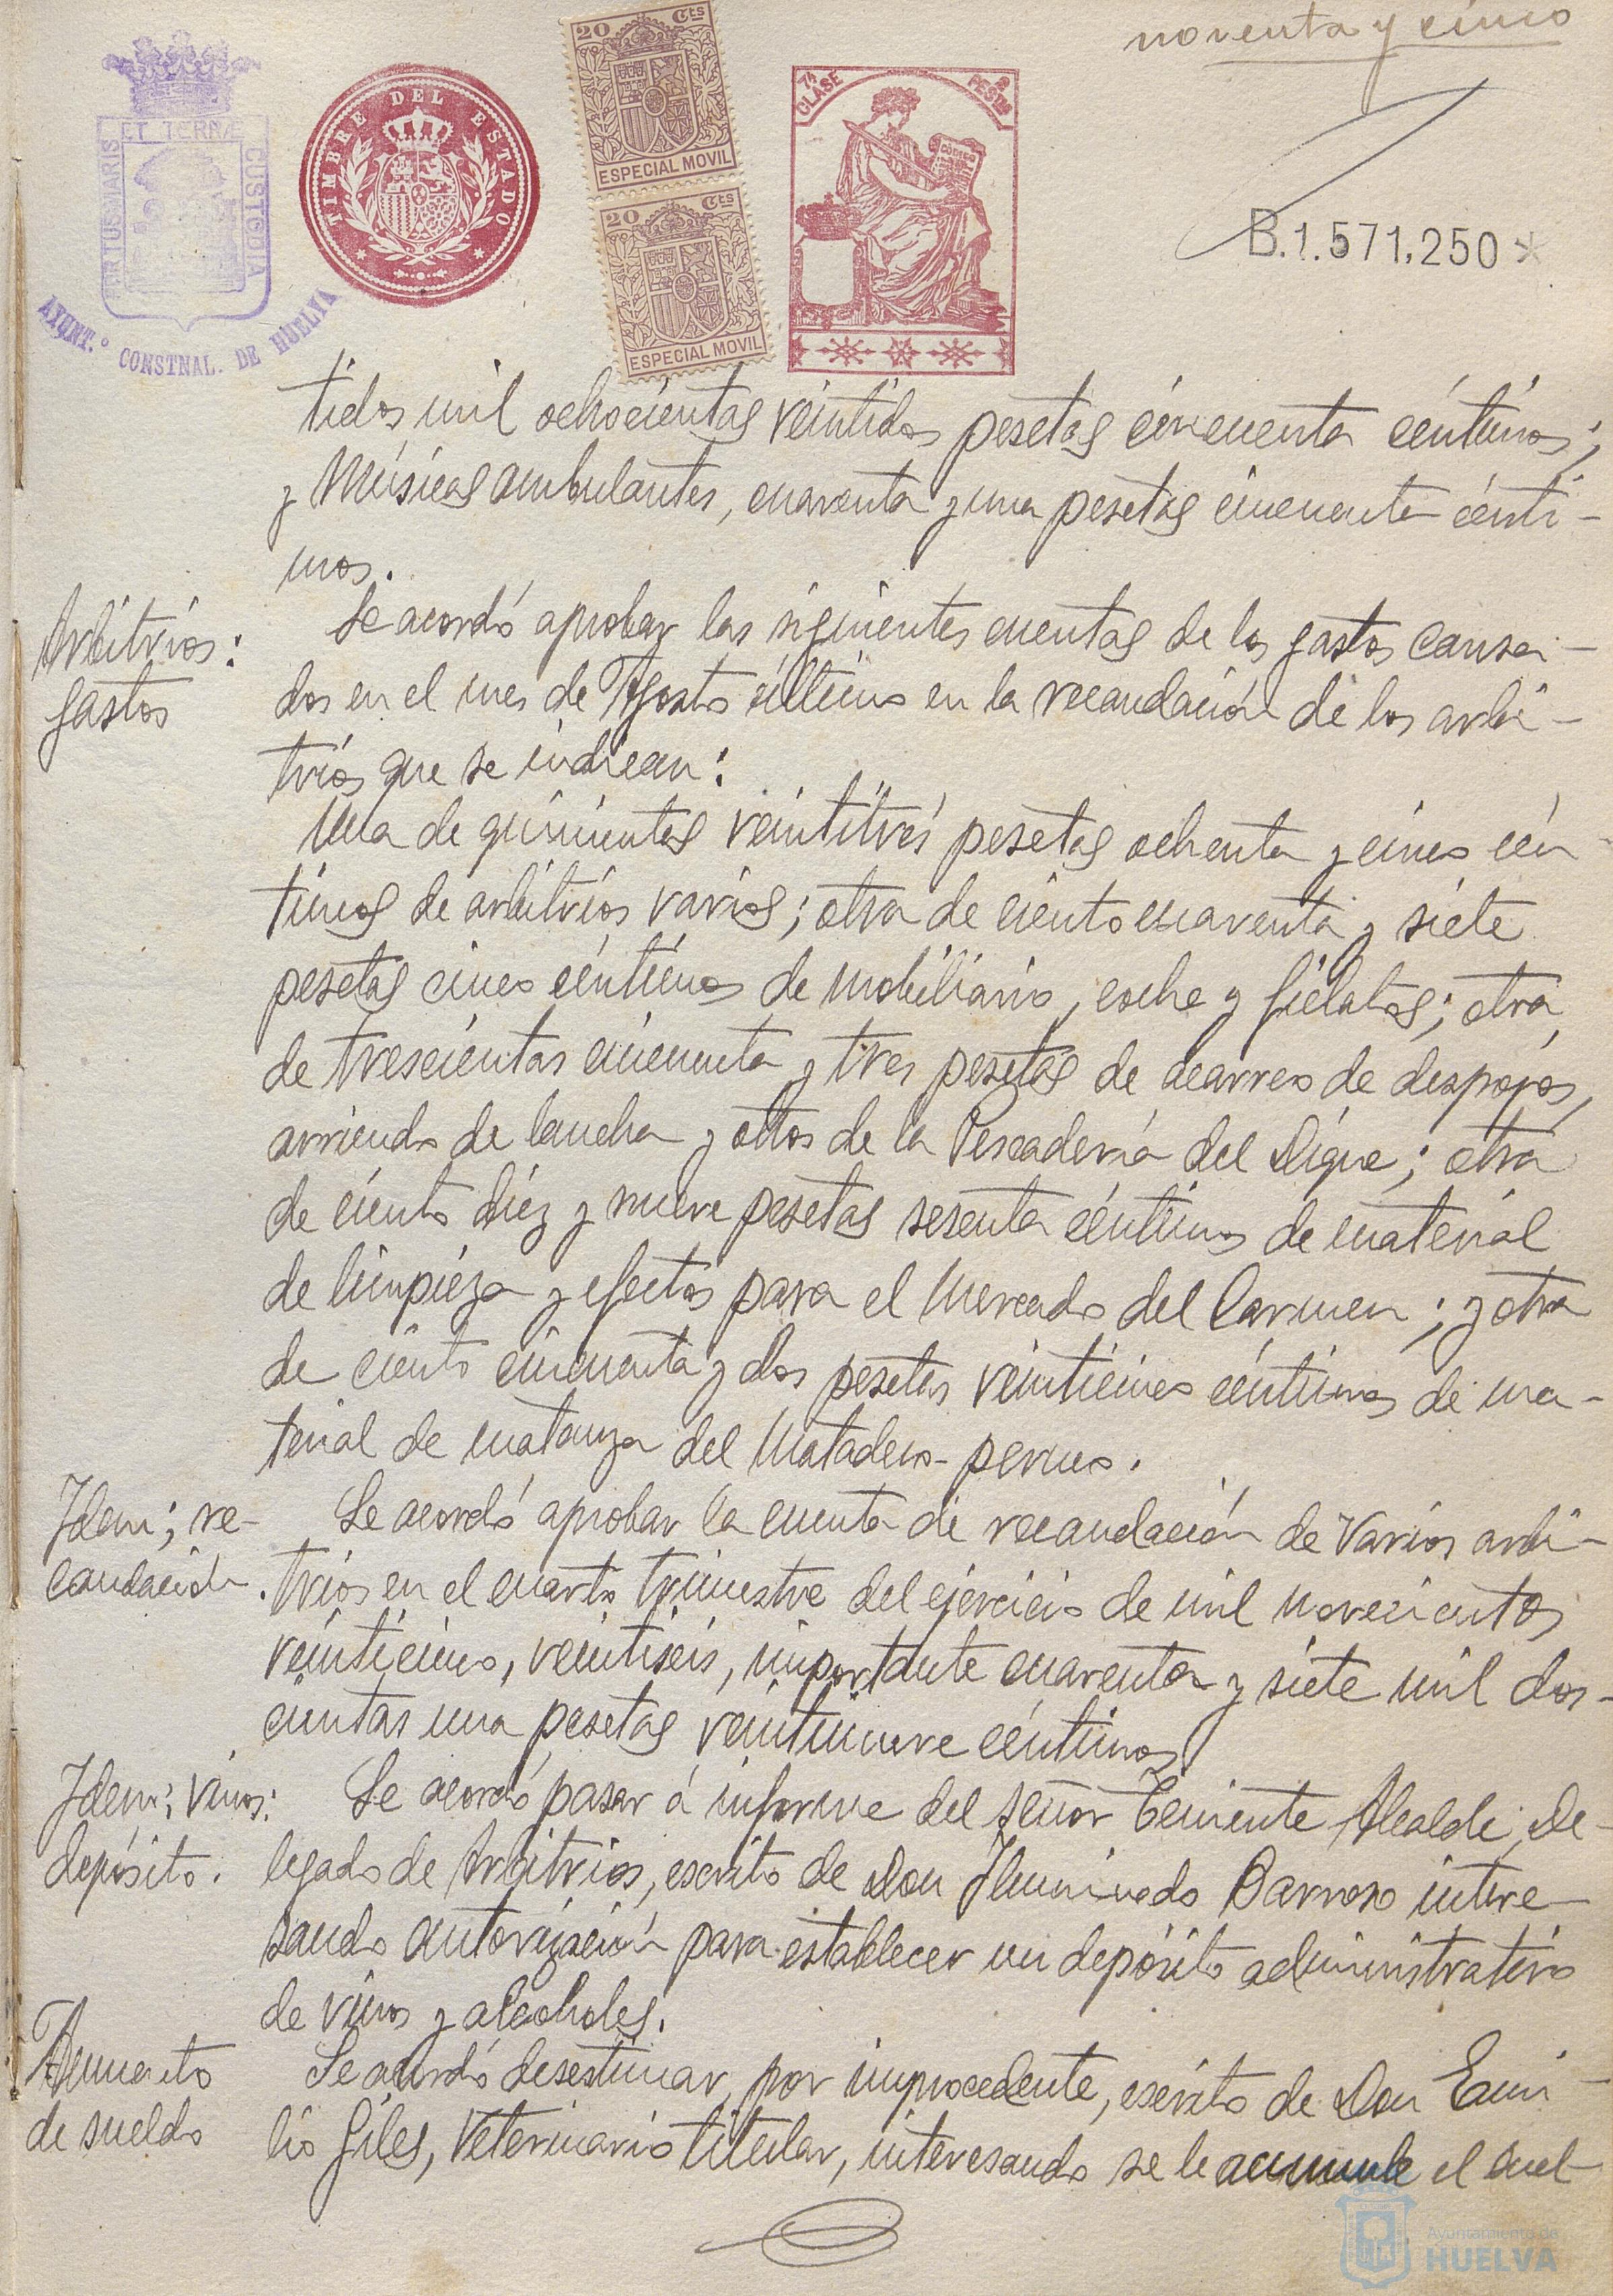 noventa y cinco
20 Cts
ESPECIAL MOVIL
20 Cts
ESPECIAL MOVIL
TIMBRE DEL ESTADO
7ª CLASE
2 PESTAS
CÓDIGO
ET TERRÆ
CUSTODIA
AYUNT.º CONSTNAL. DE HUELVA
B.1.571.250
tidos mil ochocientas veintidos pesetas cincuenta céntimos;
y Músicas ambulantes, cuarenta y una pesetas cincuenta cénti-
mos.
Arbitrios:
gastos
Se acordó aprobar las siguientes cuentas de los gastos causa-
dos en el mes de Agosto último en la recaudación de los arbi-
trios que se indican:
Una de quinientas veintitrés pesetas ochenta y cinco cén-
timos de arbitrios varios; otra de ciento cuarenta y siete
pesetas cinco céntimos de mobiliario, coche y fielatos; otra
de trescientas cincuenta y tres pesetas de acarreo de despojos,
arriendo de lancha y otros de la Pescadería del Dique; otra
de ciento diez y nueve pesetas sesenta céntimos de material
de limpieza y efectos para el Mercado del Carmen; y otra
de ciento cincuenta y dos pesetas veinticinco céntimos de ma-
terial de matanza del Matadero-perneo.
Idem; re-
caudación.
Se acordó aprobar la cuenta de recaudación de Varios arbi-
trios en el cuarto trimestre del ejercicio de mil novecientos
veinticinco, veintiseis, importante cuarenta y siete mil dos-
cientas una pesetas veintinueve céntimos
Idem; vinos:
depósito.
Se acordó pasar á informe del señor Teniente Alcalde, De-
legado de Arbitrios, escrito de Don Iluminado Barroso intere-
sando autorización para establecer un depósito administrativo
de vinos y alcoholes.
Aumento
de sueldo
Se acordó desestimar, por improcedente, escrito de Don Emi-
lio Giles, Veterinario titular, interesando se le acumule el suel-
Ayuntamiento de
HUELVA